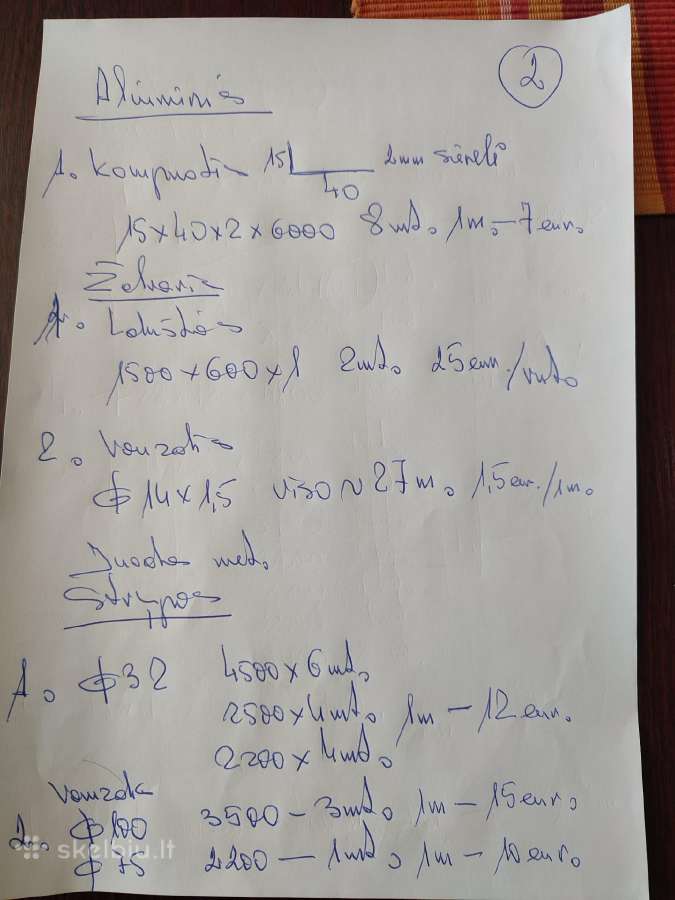 2
Aliuminis
1. Kampuotis 15 40 2mm sienelė
15x40x2x6000 8vnt. 1m.-7eur.
Žalvaris
1. Lakštas
1500x600x1 2vnt. 25eur./vnt.
2. Vamzdis
Φ14x1,5 viso ~27m. 1,5eur./1m.
Juodas met.
Strypas
1. Φ32 4500x6vnt.
2500x4vnt. 1m-12eur.
2200x4vnt.
Vamzdis
2. Φ100 3500-3vnt. 1m-15eur.
Φ75 2200-1vnt. 1m-10eur.
skelbiu.lt